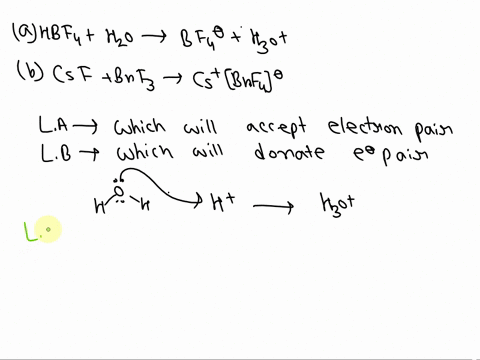 (a) HBF4 + H2O → BF4⊖ + H3O+
(b) CsF + BnF3 → Cs+ [BnF4]⊖
L.A → which will accept electron pair
L.B → which will donate e⊖ pair
H O H H+ → H3O+
L.